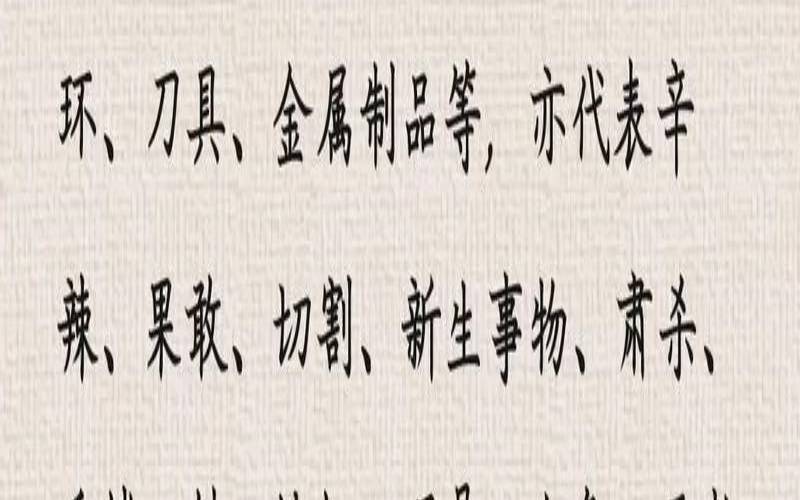 环、刀具、金属制品等,亦代表辛
辣、果敢、切割、新生事物、肃杀、